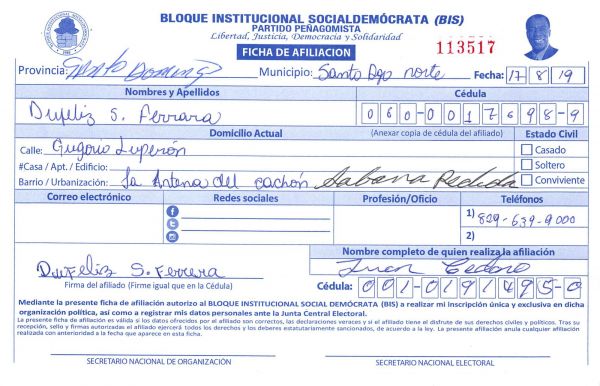 BLOQUE INSTITUCIONAL SOCIALDEMÓCRATA (BIS)
PARTIDO PEÑAGOMISTA
Libertad, Justicia, Democracia y Solidaridad
FICHA DE AFILIACION
113517
Provincia: Santo Domingo Municipio: Santo Dgo norte Fecha: 17 8 19
Nombres y Apellidos Cédula
Dufeliz S. Ferrara 060-0017698-9
Domicilio Actual (Anexar copia de cédula del afiliado) Estado Civil
Calle: Gugorio Luperón Casado
#Casa / Apt. / Edificio: Soltero
Barrio / Urbanización: La Antena del cachón Sabana Perdida Conviviente
Correo electrónico Redes sociales Profesión/Oficio Teléfonos
1) 829-639-9000
2)
Nombre completo de quien realiza la afiliación
DuFeliz S. Ferrera Juan
Firma del afiliado (Firme igual que en la Cédula) Cédula: 001-0191495-0
Mediante la presente ficha de afiliación autorizo al BLOQUE INSTITUCIONAL SOCIAL DEMÓCRATA (BIS) a realizar mi inscripción única y exclusiva en dicha
organización política, así como a registrar mis datos personales ante la Junta Central Electoral.
La presente afiliación es válida si los datos ofrecidos por el afiliado son correctos, las declaraciones veraces y si el afiliado tiene el disfrute de sus derechos civiles y políticos. Tras su
recepción, sello y firmas autorizadas el afiliado ejercerá todos los derechos y los deberes estatutariamente sancionados, de acuerdo a la ley. La presente afiliación anula cualquier afiliación
realizada con anterioridad a la fecha que aparece en esta ficha.
SECRETARIO NACIONAL DE ORGANIZACIÓN SECRETARIO NACIONAL ELECTORAL